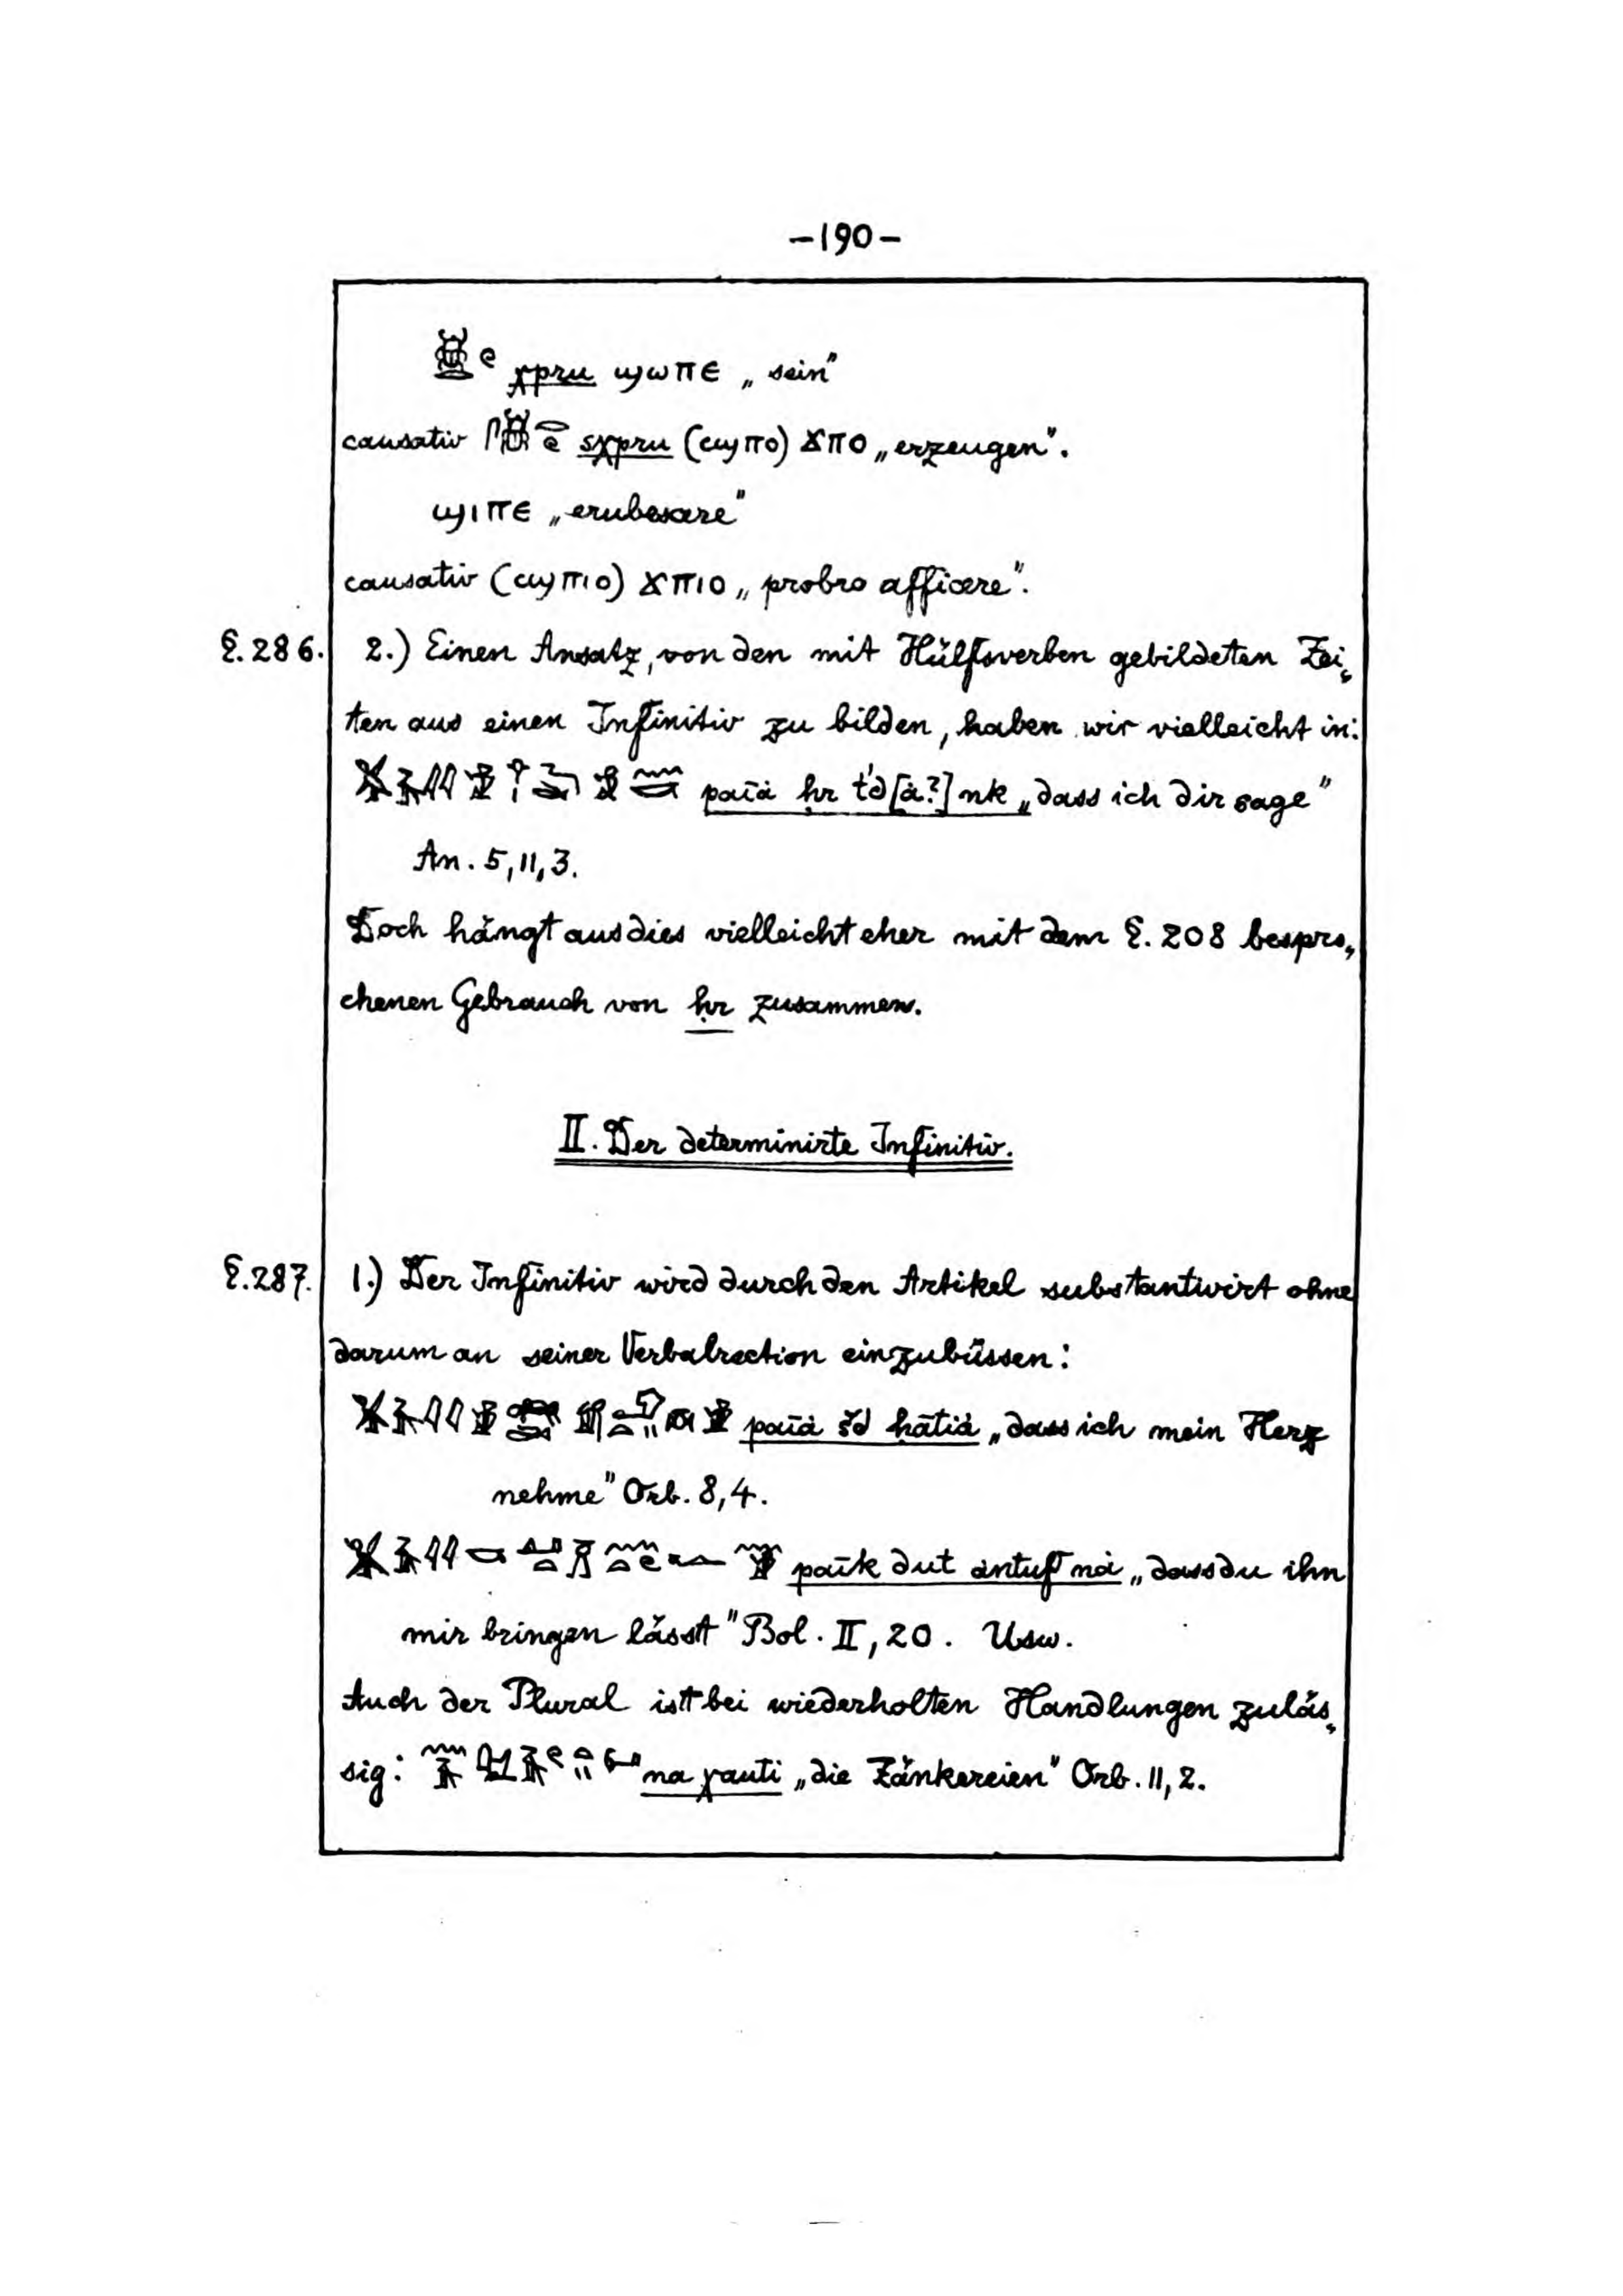 –190–
χpru ϣωπε „sein"
causativ sχpru (cϣπο) ϫπο „erzeugen".
ϣιπε „erubescere"
causativ (cϣπιο) ϫπιο „probro afficere".
§.286. 2.) Einen Ansatz, von den mit Hülfsverben gebildeten Zei„
ten aus einen Infinitiv zu bilden, haben wir vielleicht in:
paїȧ ḥr t'd[ȧ?] nk „dass ich dir sage"
An. 5,11,3.
Doch hängt aus dies vielleicht eher mit dem §. 208 bespro„
chenen Gebrauch von ḥr zusammen.
II. Der determinirte Infinitiv.
§.287. 1.) Der Infinitiv wird durch den Artikel substantivirt ohne
darum an seiner Verbalrection einzubüssen:
paїȧ šd ḥātiȧ „dass ich mein Herz
nehme" Orb. 8,4.
paїk dut ȧntuf nȧ „dass du ihn
mir bringen lässt" Bol. II, 20. Usw.
Auch der Plural ist bei wiederholten Handlungen zuläs„
sig: na χauti „die Zänkereien" Orb. 11,2.